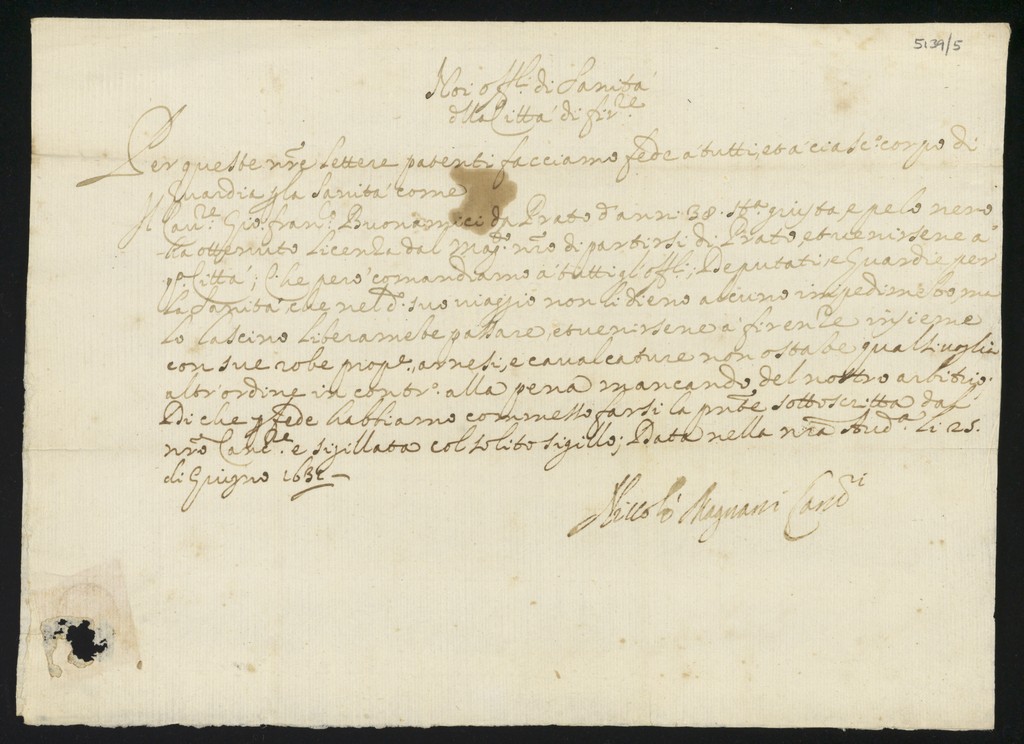 5139/5
Noi off.li di Sanità
della Città di fir.ze
Per queste nr̃e lettere patenti facciamo fede à tutti, et à ciasc.o corpo di
Guardia p la sanità come
Il Cau.re Gio: fran.o Buonamici da Prato d'anni 38. st.a giusta, e pelo nero
ha ottenuto licenza dal mag.o nr̃o di partirsi di Prato, et uenirsene à
q.a Città; Che però comandiamo à tutti gl'offl.i, Deputati, e Guardie per
la sanità che nel d.o suo uiaggio non li dieno alcuno impedimẽto, ma
lo lascino liberamẽte passare, et uenirsene à firenze insieme
con sue robe prop.e, arnesi, e caualcature non ostãte qualsiuoglia
altr'ordine in contr.o alla pena mancando, del nostro arbitrio.
Di che p fede habbiamo commesso farsi la pñte sottoscritta dal
nr̃o Canc.re e sigillata col solito sigillo; Data nella nr̃a Aud.a li 25.
di Giugno 1631
Niccolò Magnani Canc.